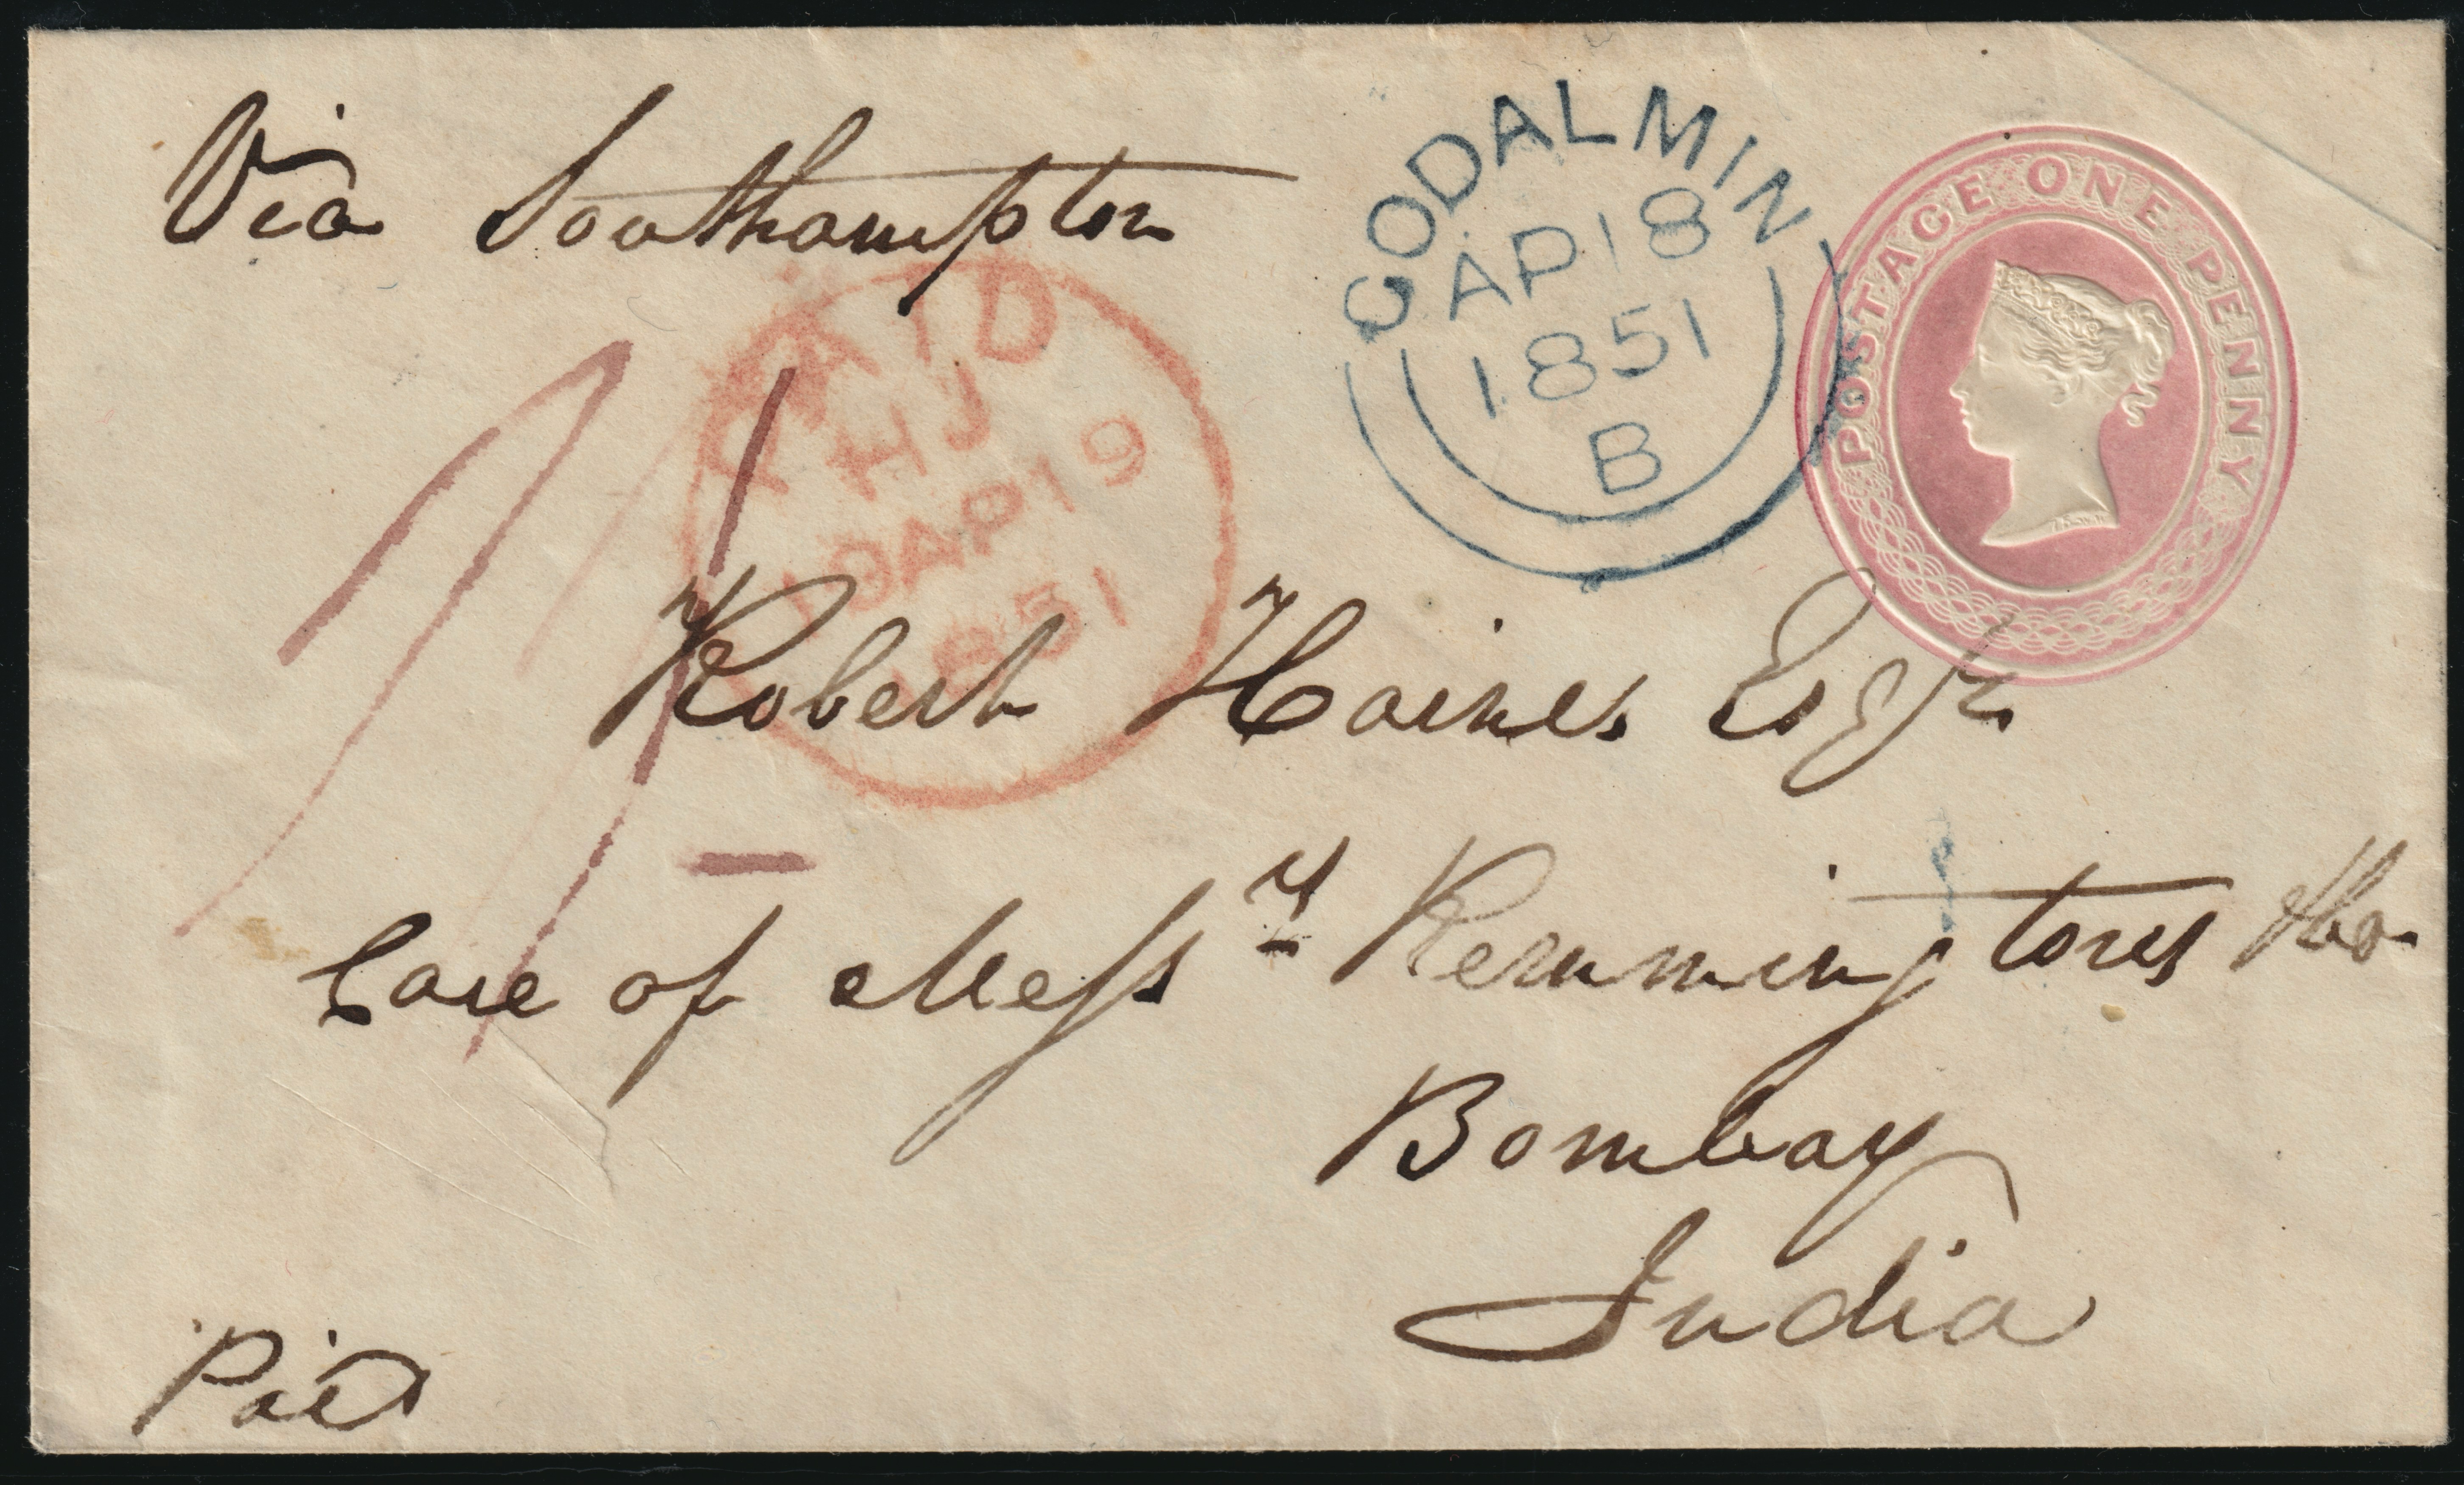 Via Southampton
GODALMIN
AP 18
1851
B
POSTAGE ONE PENNY
PAID
HJ
19 AP 19
1851
1/-
Robert Haines Esqr
Care of Messrs Remmingtons & Co.
Bombay
India
Paid